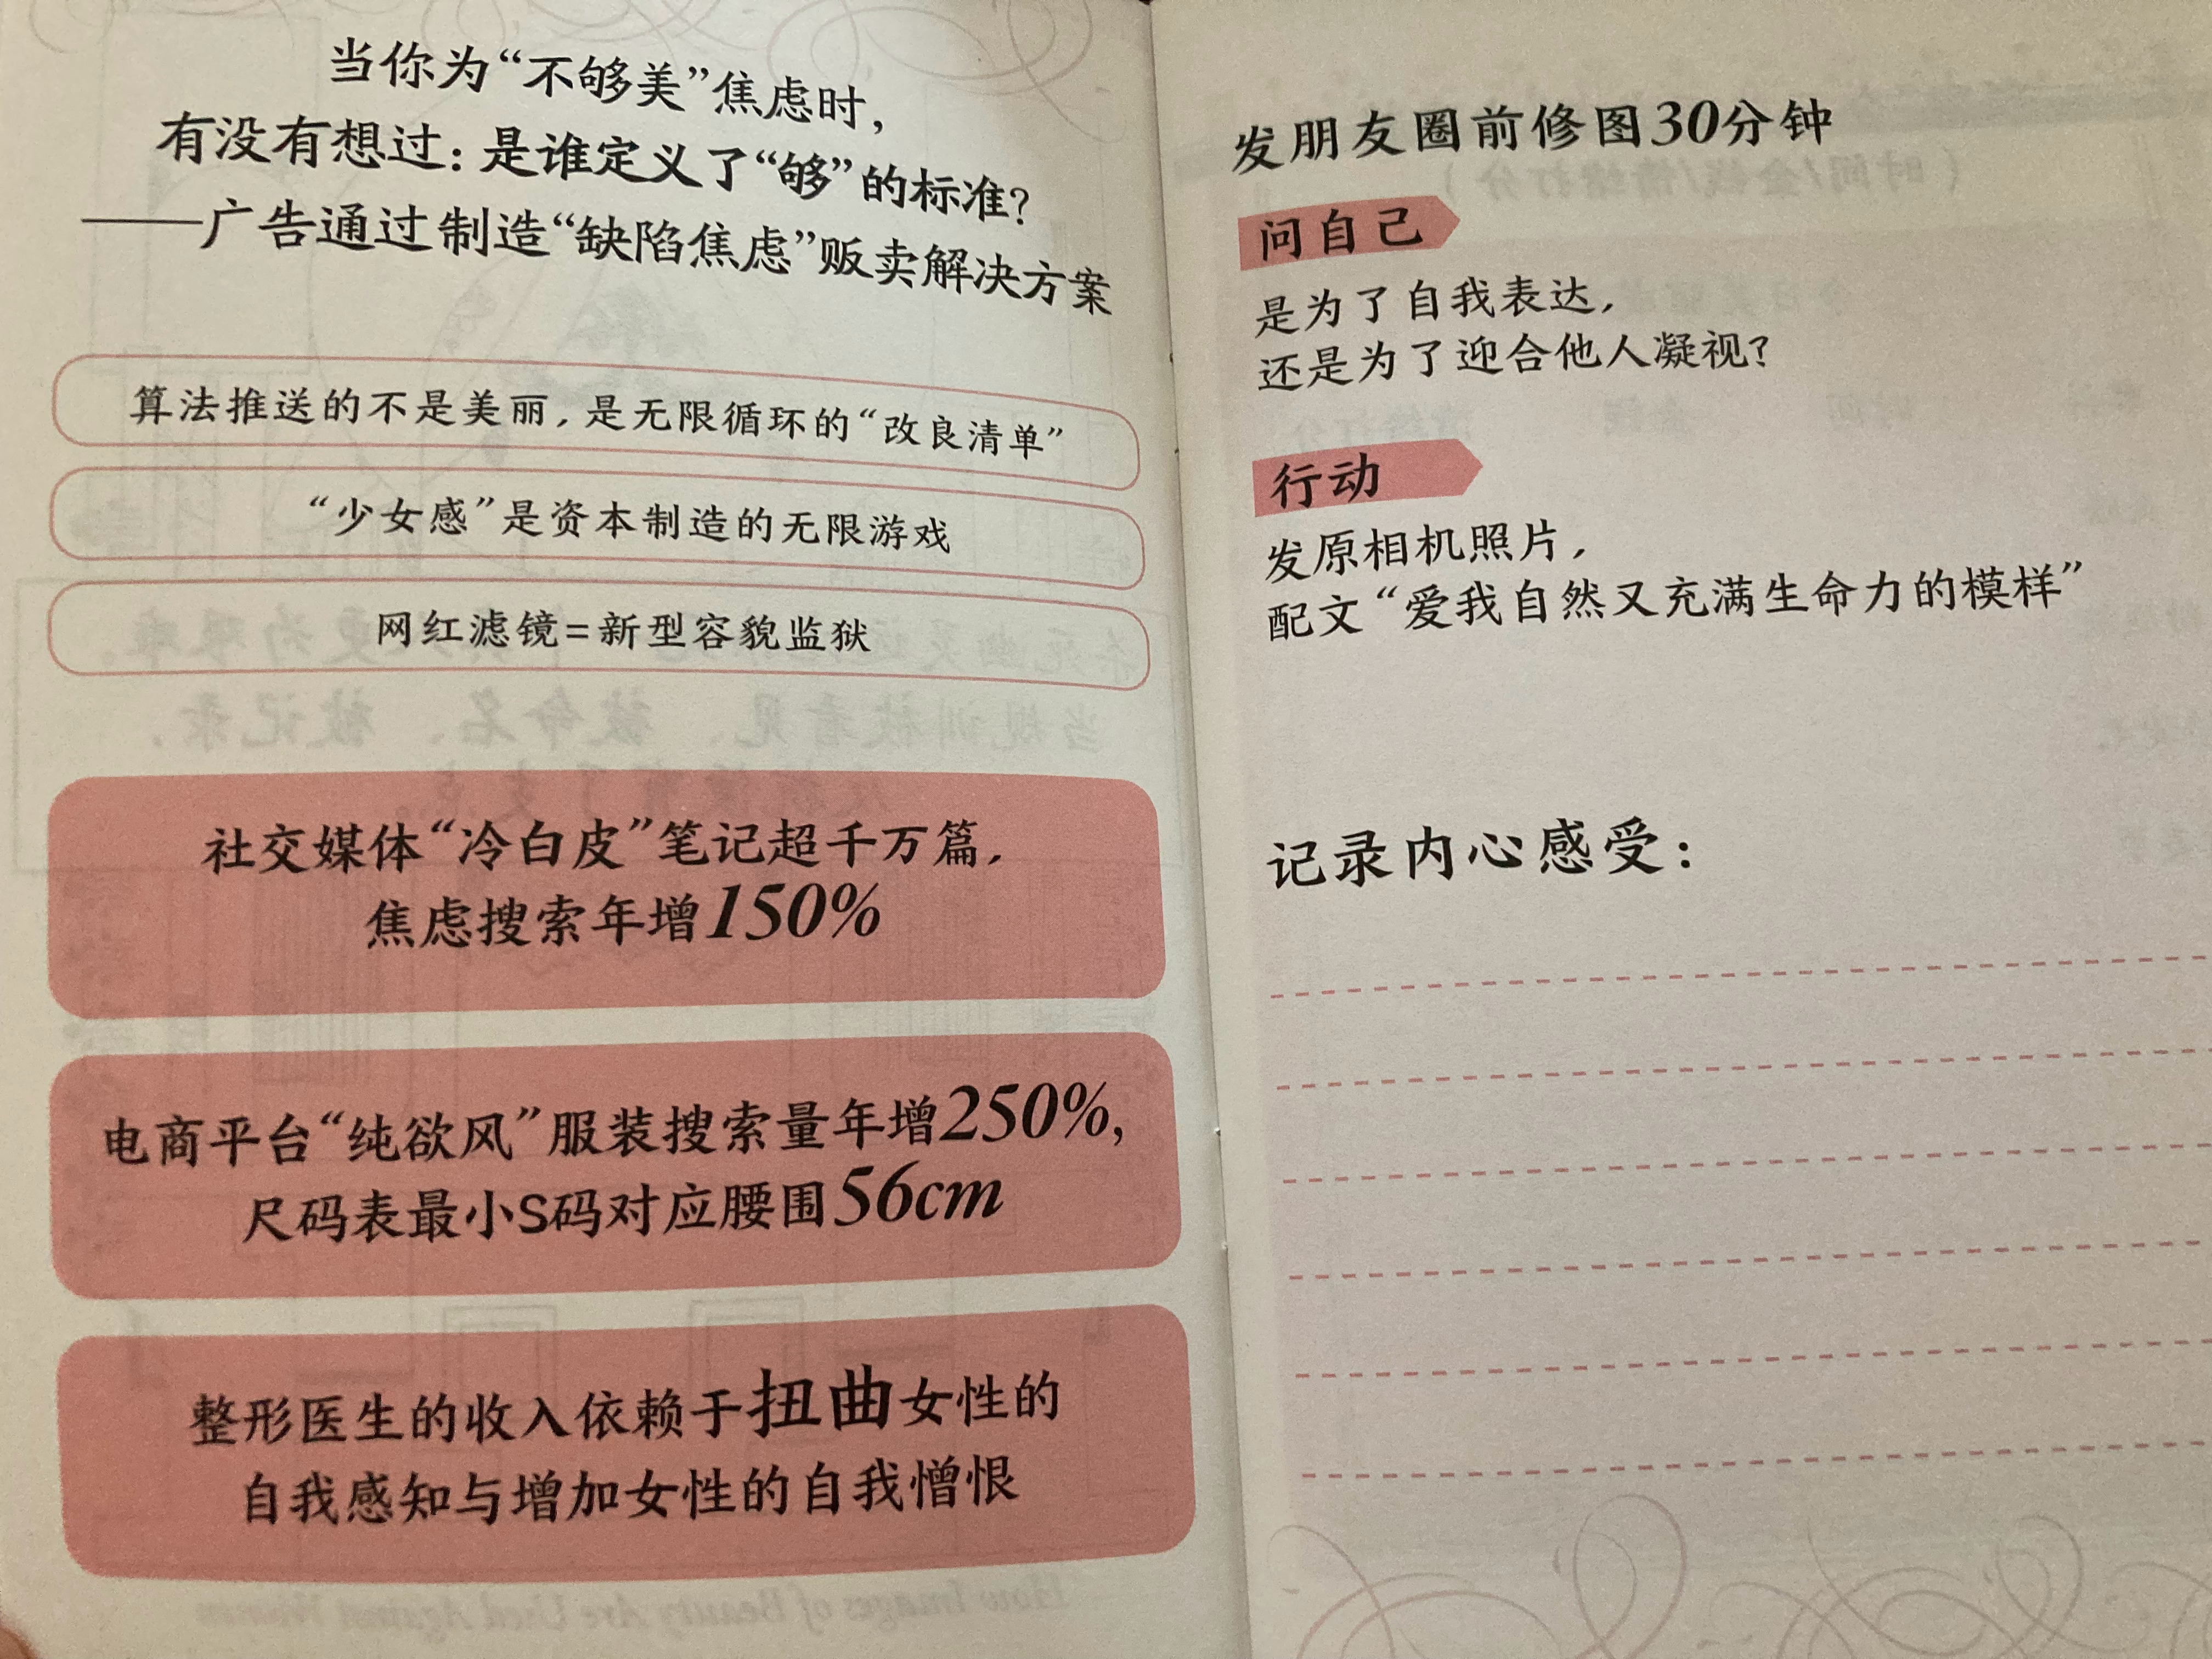 当你为“不够美”焦虑时，
有没有想过：是谁定义了“够”的标准？
——广告通过制造“缺陷焦虑”贩卖解决方案
算法推送的不是美丽，是无限循环的“改良清单”
“少女感”是资本制造的无限游戏
网红滤镜=新型容貌监狱
社交媒体“冷白皮”笔记超千万篇，
焦虑搜索年增150%
电商平台“纯欲风”服装搜索量年增250%，
尺码表最小S码对应腰围56cm
整形医生的收入依赖于扭曲女性的
自我感知与增加女性的自我憎恨
How Images of Beauty Are Used Against Women
发朋友圈前修图30分钟
（时间/金钱/情绪打分）
问自己
是为了自我表达，
还是为了迎合他人凝视？
行动
发原相机照片，
配文“爱我自然又充满生命力的模样”
记录内心感受：